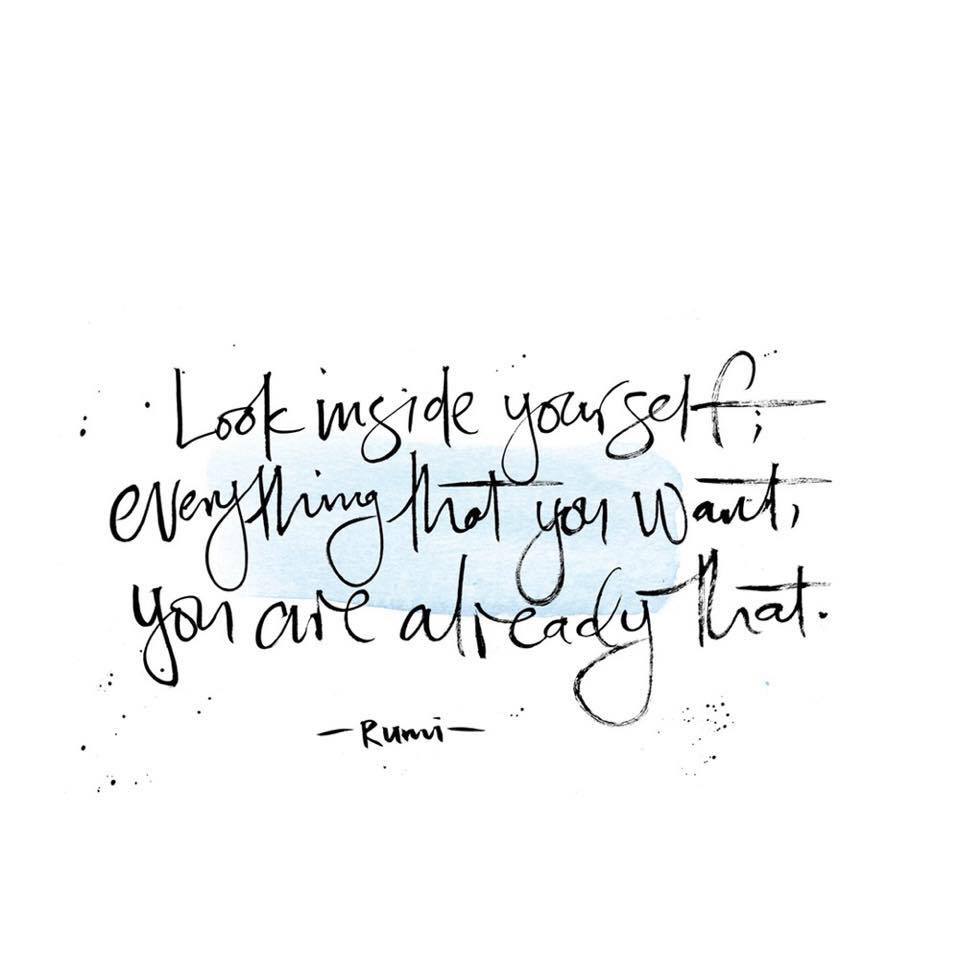 Look inside yourself;
everything that you want,
you are already that.
-Rumi-